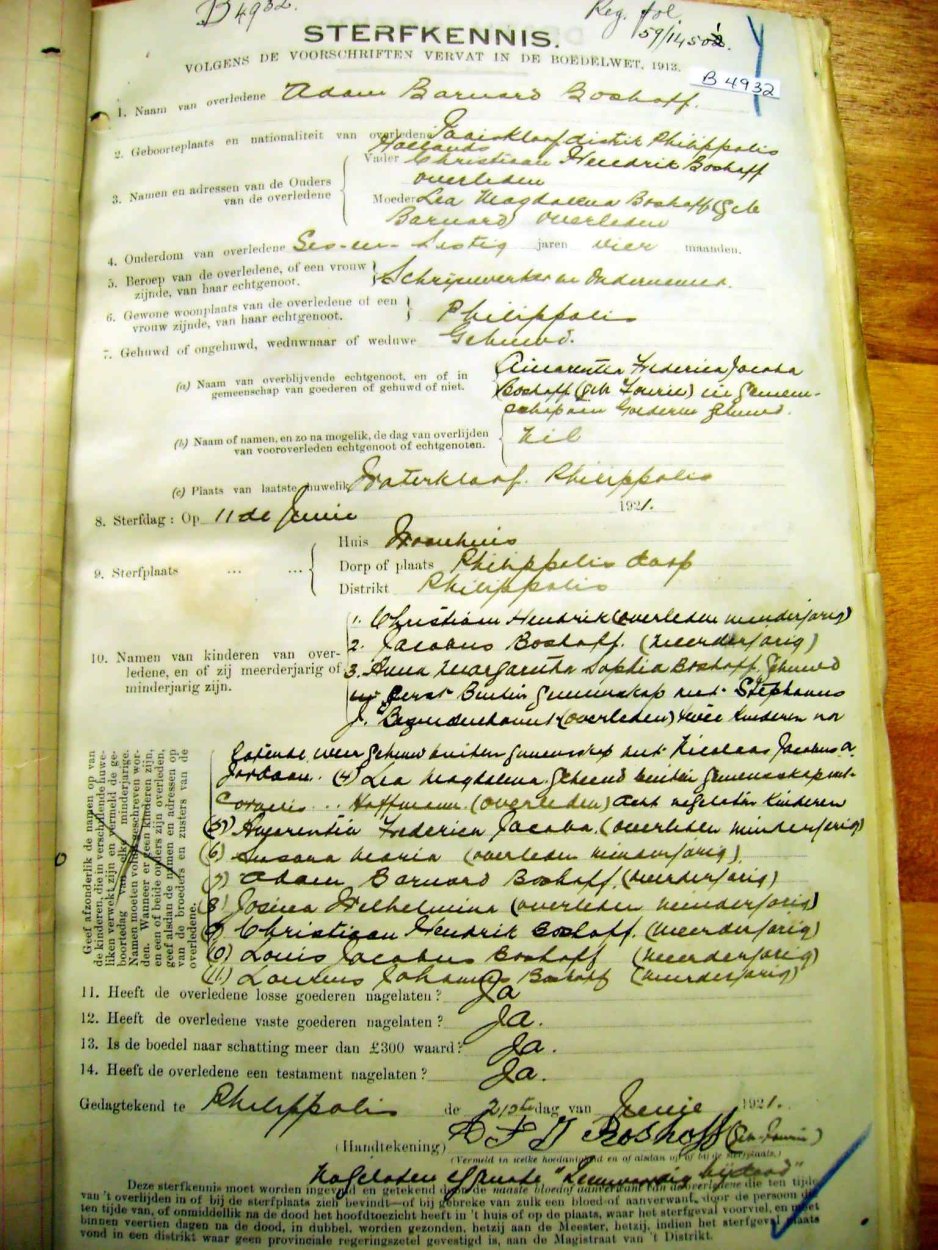 B 4932.
Reg. fol.
59/14502.
STERFKENNIS.
VOLGENS DE VOORSCHRIFTEN VERVAT IN DE BOEDELWET, 1913.
B 4932
1. Naam van overledene Adam Barnard Boshoff.
2. Geboorteplaats en nationaliteit van overledene distrik Philippolis
Hollands
3. Namen en adressen van de Ouders
van de overledene
Vader Christiaan Hendrik Boshoff
overleden
Moeder Lea Magdalena Boshoff (geb
Barnard) overleden
4. Onderdom van overledene Ses-en-Sestig jaren vier maanden.
5. Beroep van de overledene, of een vrouw
zijnde, van haar echtgenoot.
Schrijnwerker en Ondernemer.
6. Gewone woonplaats van de overledene of een
vrouw zijnde, van haar echtgenoot.
Philippolis
7. Gehuwd of ongehuwd, weduwnaar of weduwe Gehuwd.
(a) Naam van overblijvende echtgenoot, en of in
gemeenschap van goederen of gehuwd of niet.
Frederica Jacoba
Boshoff (geb Fourie) in gemeen-
schap van Goederen gehuwd.
(b) Naam of namen, en zo na mogelik, de dag van overlijden
van vooroverleden echtgenoot of echtgenoten.
Nil
(c) Plaats van laatste huwelik Waterkloof. Philippolis
8. Sterfdag: Op 11 de Junie 1921.
9. Sterfplaats ... ...
Huis Woonhuis
Dorp of plaats Philippolis dorp
Distrikt Philippolis
10. Namen van kinderen van over-
ledene, en of zij meerderjarig of
minderjarig zijn.
1. Christiaan Hendrik (overleden minderjarig)
2. Jacobus Boshoff. (meerderjarig)
3. Anna Margaretha Sophia Boshoff. Gehuwd
eerst Buiten gemeenskap met Stephanus
J. Bezuidenhout (overleden) twee kinderen
weer gehuwd buiten gemeenskap met Nicolaas Jacobus A
Jordaan. (4) Lea Magdalena. gehuwd buiten gemeenskap met
Cornelis .. Hoffmann. (overleden) acht nagelaten kinderen
(5) Frederica Jacoba. (overleden minderjarig)
(6) Susara Maria (overleden minderjarig)
(7) Adam Barnard Boshoff. (meerderjarig)
(8) Josina Wilhelmina (overleden minderjarig)
(9) Christiaan Hendrik Boshoff. (meerderjarig)
(10) Louis Jacobus Boshoff (meerderjarig)
(11) Lourens Johannes Boshoff (meerderjarig)
Geef afzonderlik de namen op van
de kinderen, die in verschillende huwe-
liken verwekt zijn en vermeld de ge-
boortedag van elke minderjarige.
Namen moeten voluit geschreven wor-
den. Wanneer er geen kinderen zijn,
en een of beide ouders zijn overleden,
geef alsdan de namen en adressen op
van de broeders en zusters van de
overledene.
11. Heeft de overledene losse goederen nagelaten? Ja
12. Heeft de overledene vaste goederen nagelaten? Ja.
13. Is de boedel naar schatting meer dan £300 waard? Ja.
14. Heeft de overledene een testament nagelaten? Ja.
Gedagtekend te Philippolis de 21ste dag van Junie 1921.
(Handtekening) A F J Boshoff (geb. Fourie)
(Vermeld in welke hoedanigheid en of alsdan op of bij de sterfplaats.)
Nagelaten
Deze sterfkennis moet worden ingevuld en getekend door de naaste bloed of aanverwant van de overledene die ten tijde
van 't overlijden in of bij de sterfplaats zich bevindt—of bij gebreke van zulk een bloed of aanverwant, door de persoon die
ten tijde van, of onmiddellik na de dood het hoofdtoezicht heeft in 't huis of op de plaats, waar het sterfgeval voorviel, en moet
binnen veertien dagen na de dood, in dubbel, worden gezonden, hetzij aan de Meester, hetzij, indien het sterfgeval plaats
vond in een distrikt waar geen provinciale regeringszetel gevestigd is, aan de Magistraat van 't Distrikt.